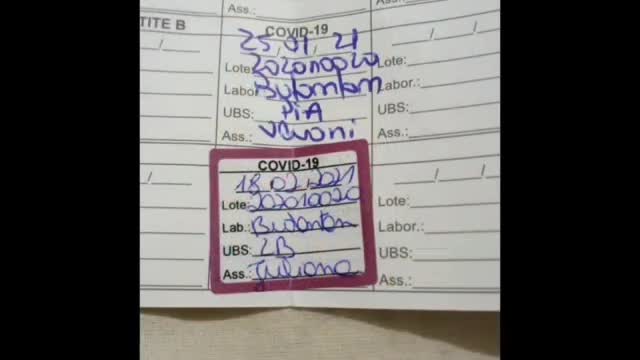 Ass.:
TITE B
COVID-19
25/01/21
Lote: 
Labor Butantan
UBS: PiA
Ass.:
Lote:
Labor.:
UBS:
Ass.:
COVID-19
18/02/2021
Lote: 202010020
Lab.: Butantan
UBS: ZB
Ass.: Juliana
Lote:
Labor.:
UBS:
Ass.: